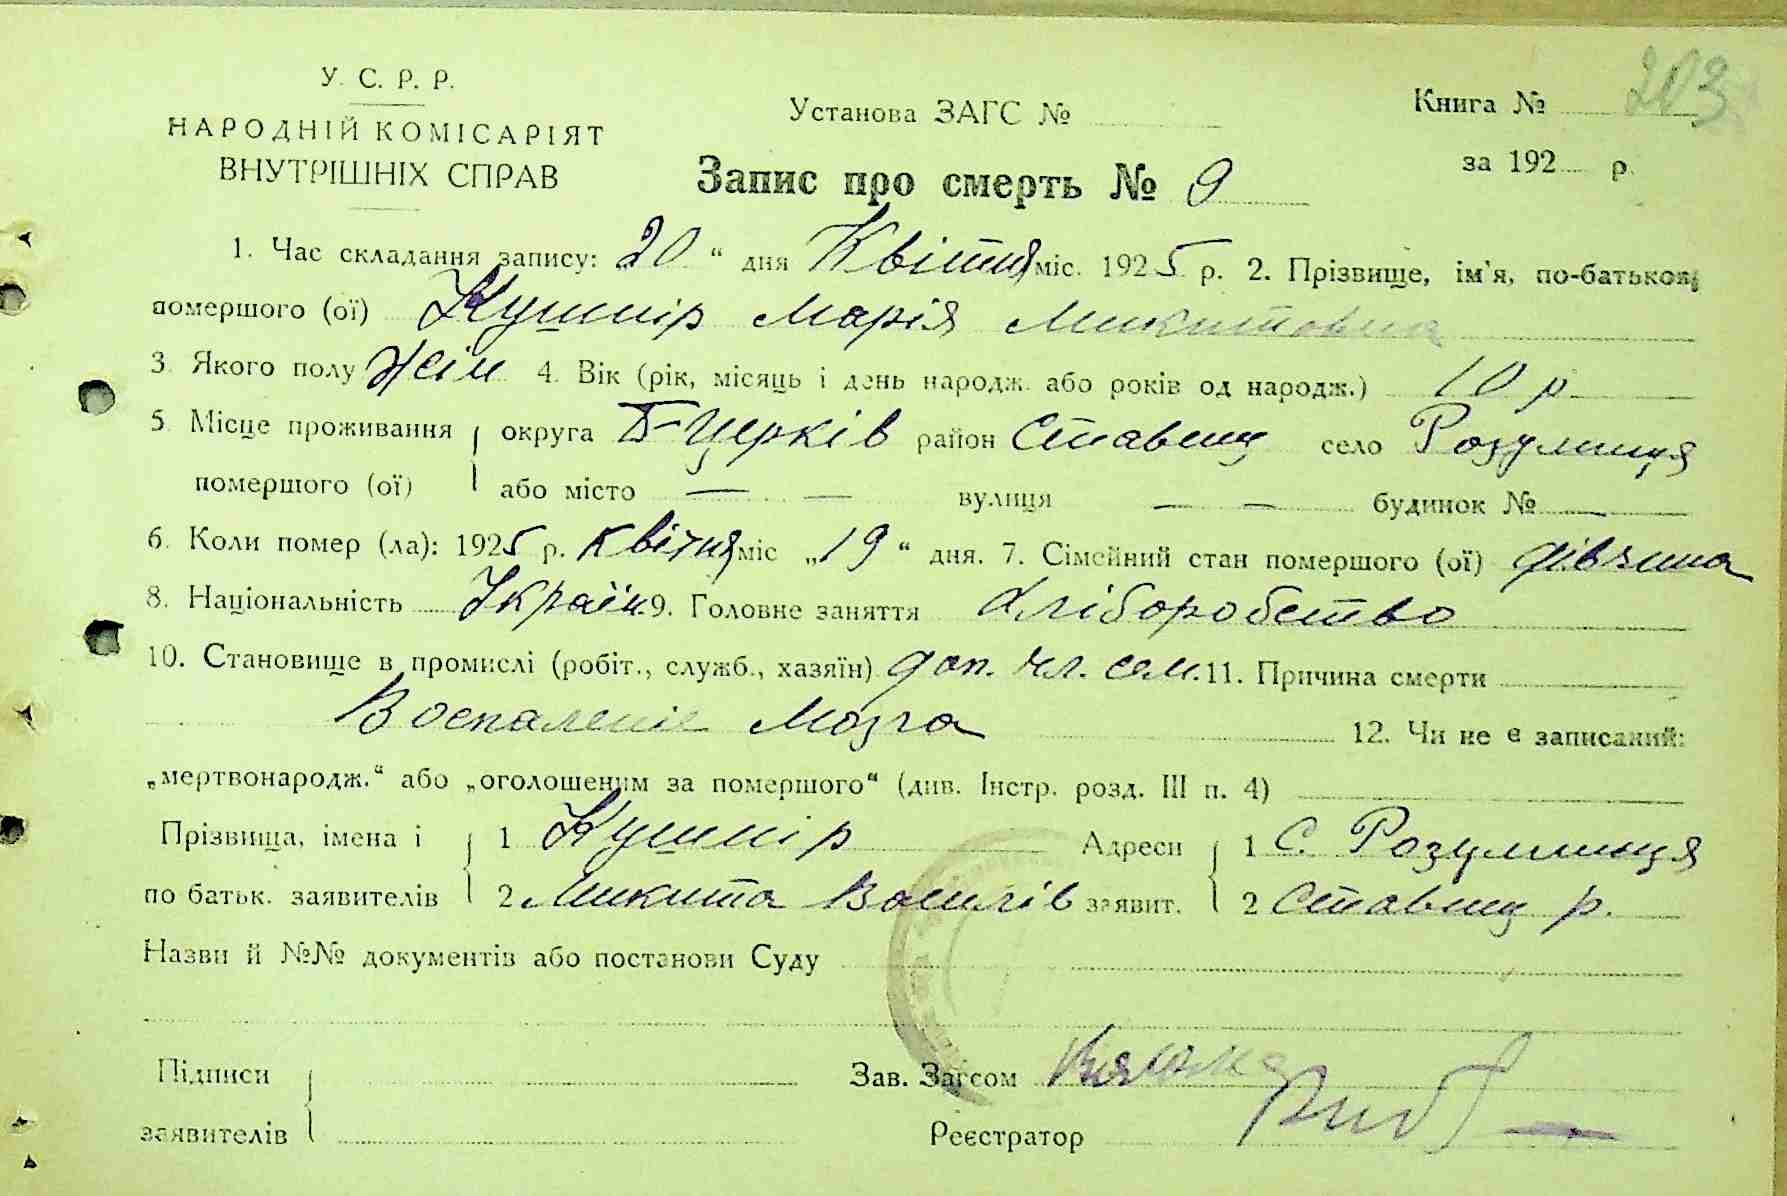 203
У. С. Р. Р.
НАРОДНІЙ КОМІСАРІЯТ
ВНУТРІШНІХ СПРАВ
Установа ЗАГС №
Книга №
за 192 р.
Запис про смерть № 9
1. Час складання запису: „20“ дня Квітня міс. 1925 р. 2. Прізвище, ім'я, по-батькові
помершого (ої) Кушнір Марія Микитовна
3. Якого полу Жін 4. Вік (рік, місяць і день народж. або років од народж.) 10 р.
5. Місце проживання округа Б-Церків район Ставищ село Розумниця
помершого (ої) або місто — — вулиця — — будинок № —
6. Коли помер (ла): 1925 р. квітня міс „19“ дня. 7. Сімейний стан помершого (ої) дівчина
8. Національність Україн. 9. Головне заняття Хліборобство
10. Становище в промислі (робіт., служб., хазяїн) доп. чл. сем. 11. Причина смерти
Воспаление Мозга 12. Чи не є записаний:
„мертвонародж.“ або „оголошеним за помершого“ (див. Інстр. розд. III п. 4)
Прізвища, імена і 1 Кушнір Адреси 1 С. Розумниця
по батьк. заявителів 2 Микита Василів заявит. 2 Ставищ р.
Назви й №№ документів або постанови Суду
Підписи Зав. Загсом
заявителів Реєстратор